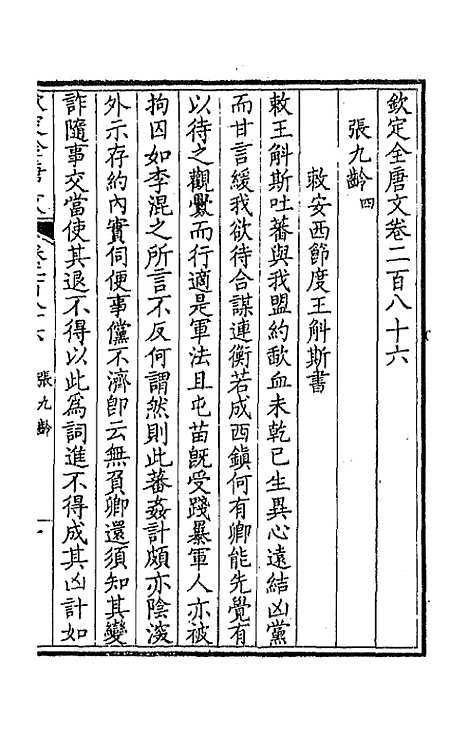 欽定全唐文卷二百八十六
張九齡四
敕安西節度王斛斯書
敕王斛斯吐蕃與我盟約歃血未乾已生異心遠結凶黨
而甘言緩我欲待合謀連衡若成西鎮何有卿能先覺有
以待之觀釁而行適是軍法且屯苗旣受踐暴軍人亦被
拘囚如李混之所言不反何謂然則此蕃姦計頗亦陰深
外示存約內實伺便事儻不濟卽云無負卿還須知其變
詐隨事交當使其退不得以此爲詞進不得成其凶計如
張九齡
一